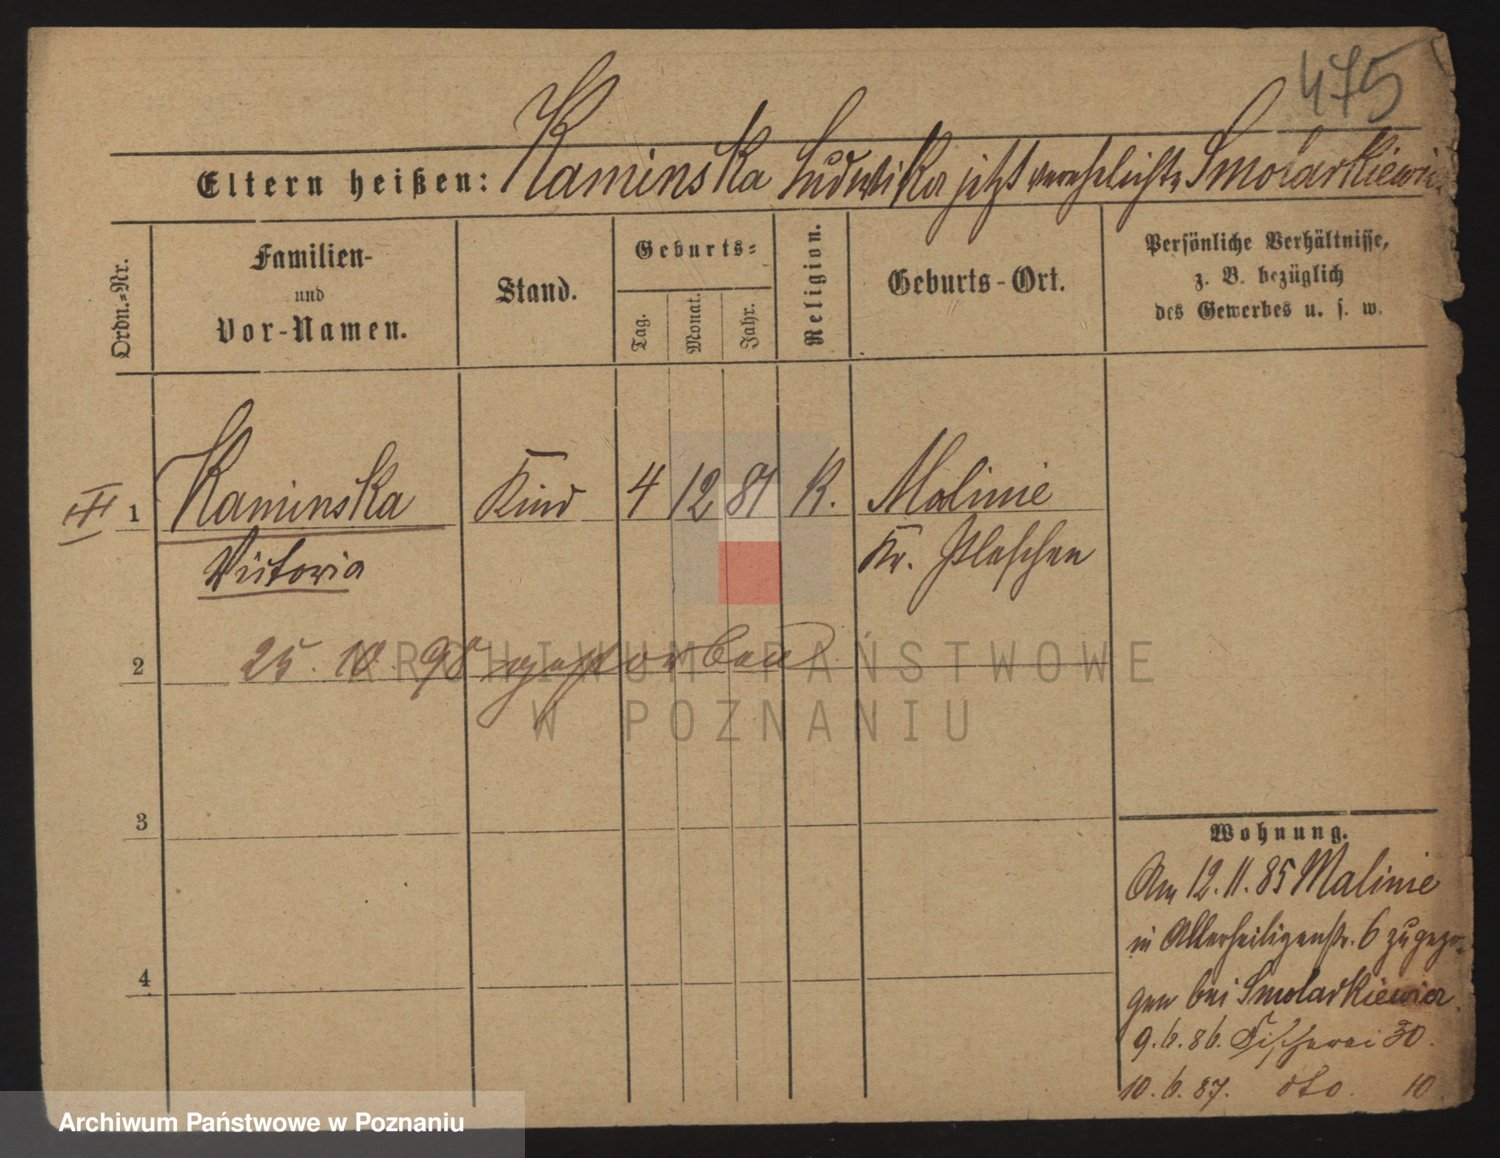 475
Eltern heißen: Kaminska Ludwika jetzt verehelichte Smolarkiewicz
Ordn.=Nr.
Familien-
und
Vor-Namen.
Stand.
Geburts=
Tag.
Monat.
Jahr.
Religion.
Geburts-Ort.
Persönliche Verhältnisse,
z. B. bezüglich
des Gewerbes u. s. w.
1 Kaminska Kind 4 12 81 K. Malinie
Victoria Kr. Pleschen
2 25. 10 98 gestorben
3
4
Wohnung.
Am 12. 11. 85 Malinie
in Allerheiligenstr. 6 zugezo-
gen bei Smolarkiewicz.
9. 6. 86. Fischerei 30.
10. 6. 87. dto. 10
ARCHIWUM PAŃSTWOWE
W POZNANIU
Archiwum Państwowe w Poznaniu